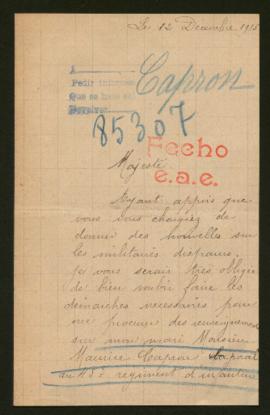 Le 12 Décembre 1915
A
Pedir informes
Que se hace
Capron
85307
Fecho
e.a.e.
Majesté
Ayant appris que
vous vous chargiez de
donner des nouvelles sur
les militaires disparus
je vous serais très obligée
de bien vouloir faire les
démarches nécessaires pour
me procurer des renseignements
sur mon mari Monsieur
Maurice Capron Caporal
au régiment d'infanterie